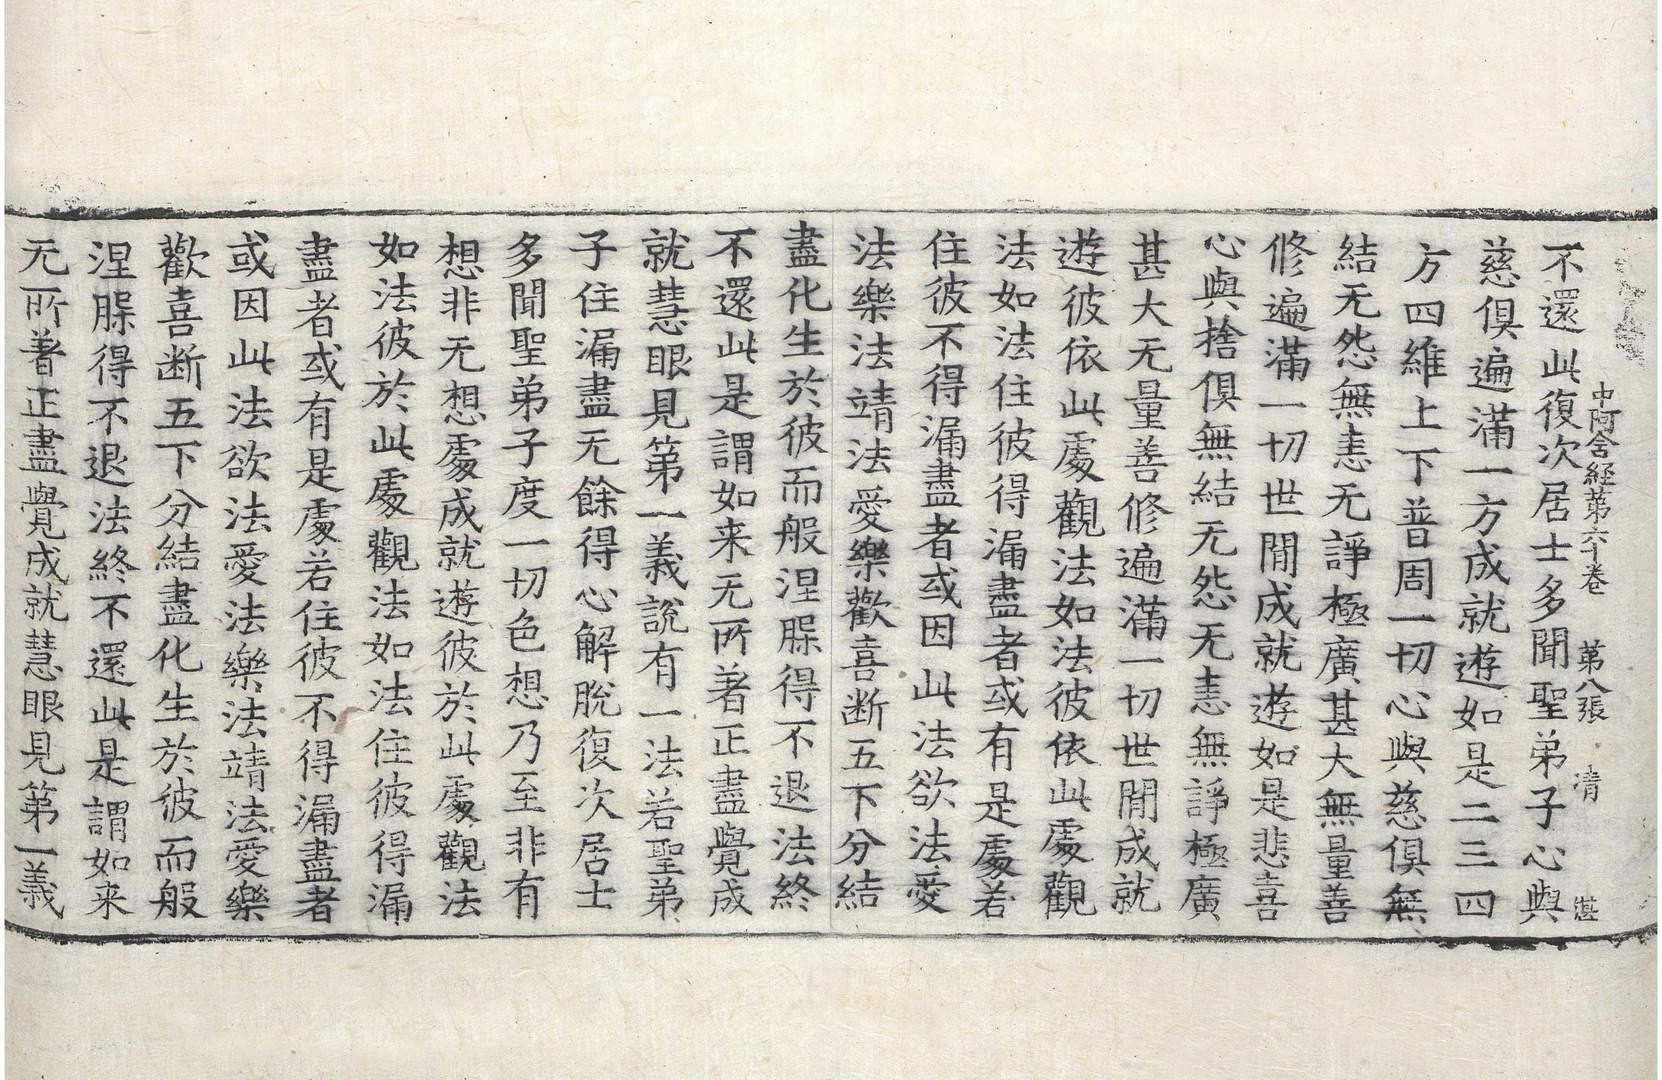 中阿含経第六十卷　第八張　清　湛
不還此復次居士多聞聖弟子心與
慈俱遍滿一方成就遊如是二三四
方四維上下普周一切心與慈俱無
結无怨無恚无諍極廣甚大無量善
修遍滿一切世間成就遊如是悲喜
心與捨俱無結无怨无恚無諍極廣
甚大无量善修遍滿一切世間成就
遊彼依此處觀法如法彼依此處觀
法如法住彼得漏盡者或有是處若
住彼不得漏盡者或因此法欲法愛
法樂法靖法愛樂歡喜断五下分結
盡化生於彼而般涅槃得不退法終
不還此是謂如来无所著正盡覺成
就慧眼見第一義說有一法若聖弟
子住漏盡无餘得心解脫復次居士
多聞聖弟子度一切色想乃至非有
想非无想處成就遊彼於此處觀法
如法彼於此處觀法如法住彼得漏
盡者或有是處若住彼不得漏盡者
或因此法欲法愛法樂法靖法愛樂
歡喜断五下分結盡化生於彼而般
涅槃得不退法終不還此是謂如来
无所著正盡覺成就慧眼見第一義